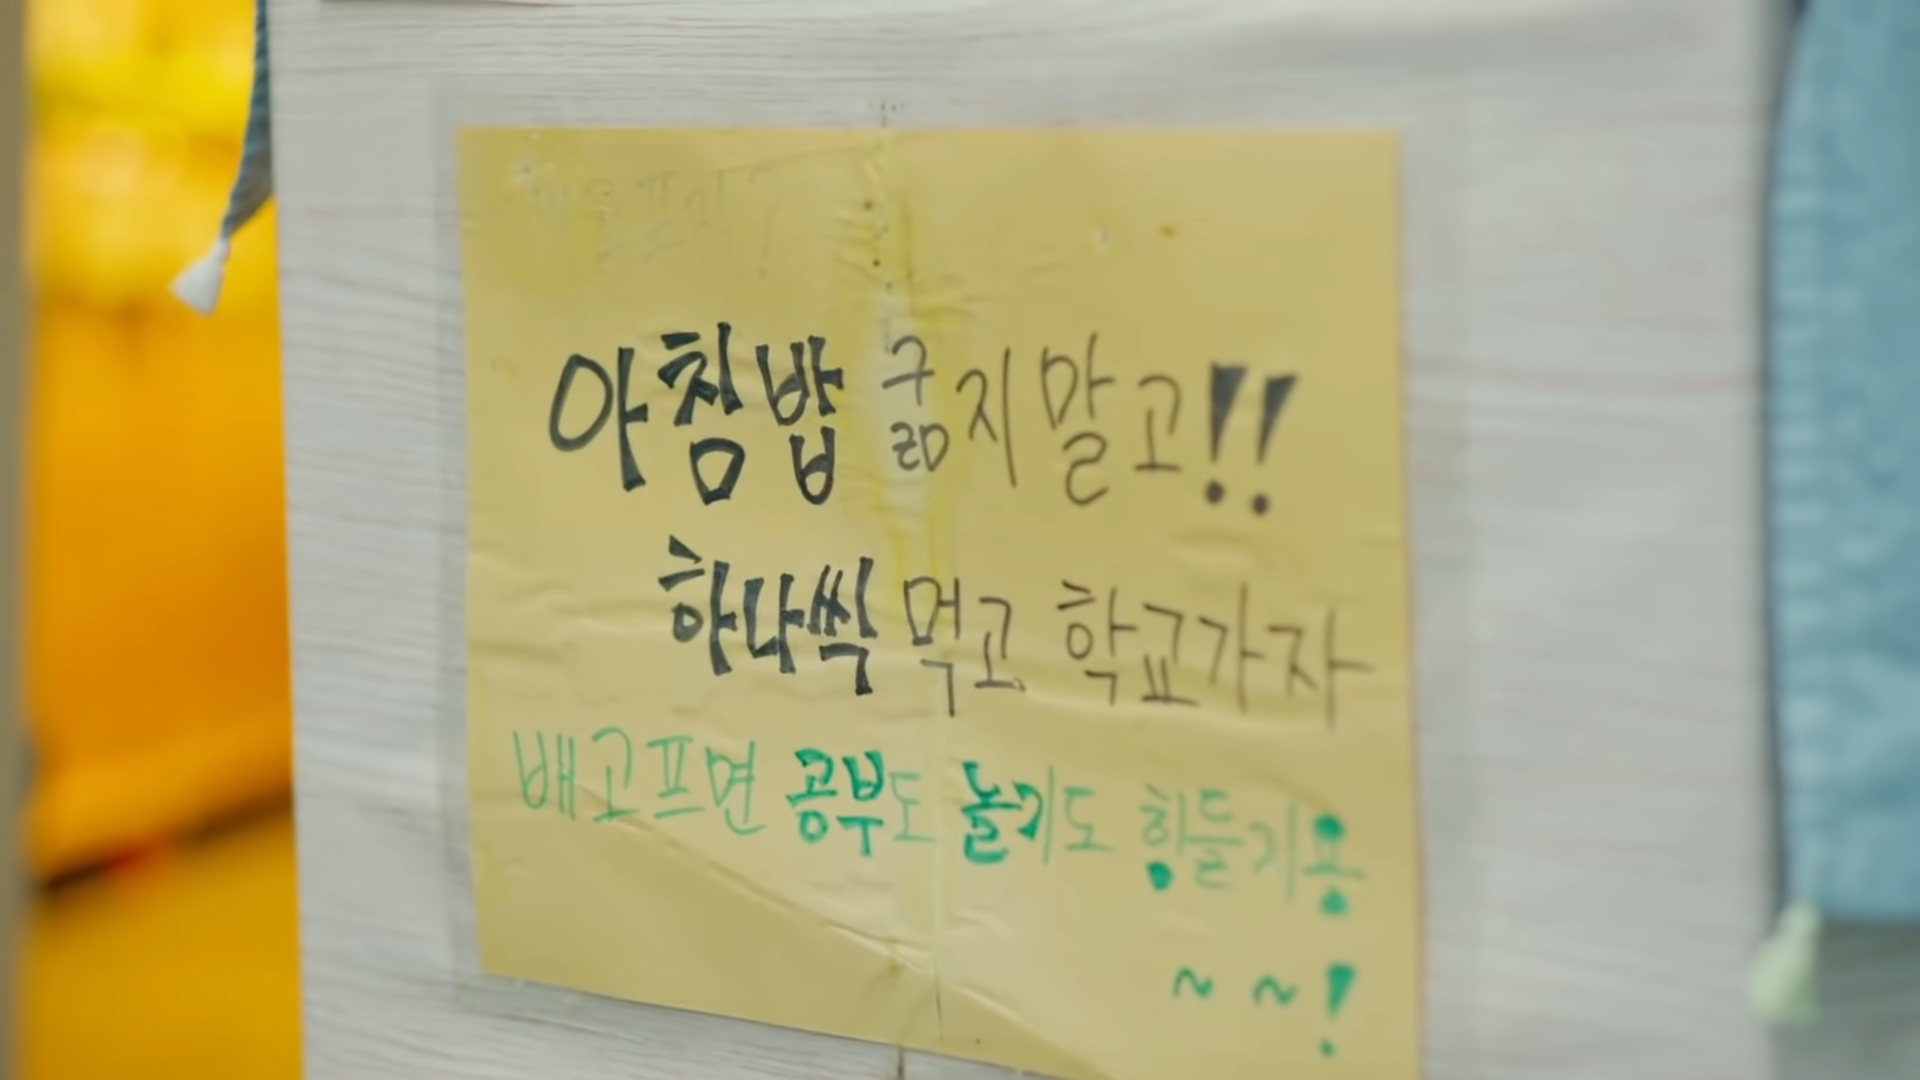 아침밥 굶지말고!!
하나씩 먹고 학교가자
배고프면 공부도 놀기도 힝들지용
~ ~ !